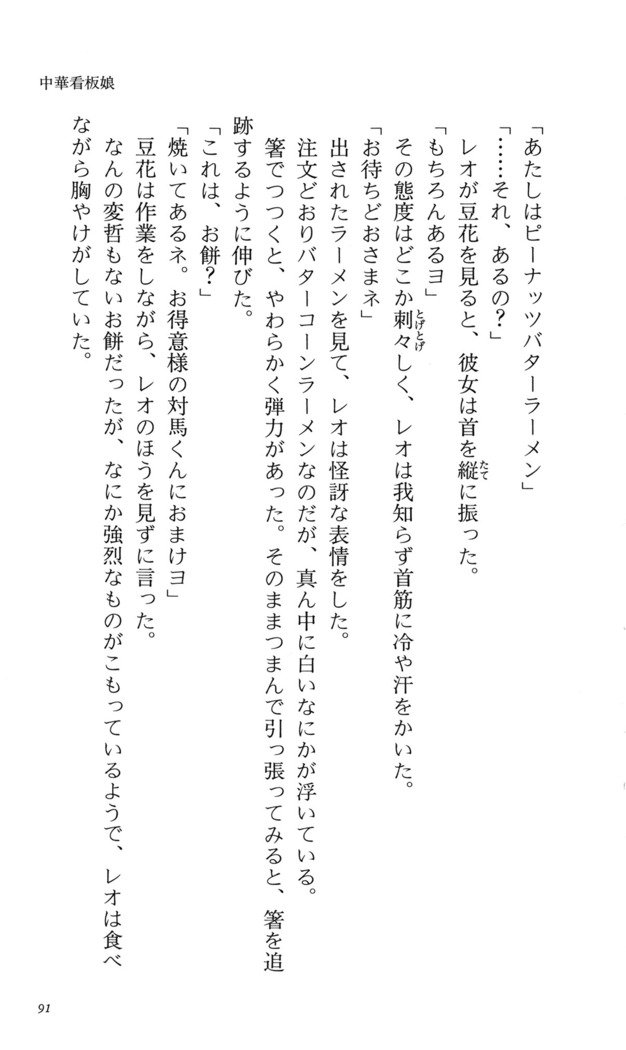 中華看板娘
「あたしはピーナッツバターラーメン」
「……それ、あるの？」
レオが豆花を見ると、彼女は首を縦に振った。
たて
「もちろんあるヨ」
その態度はどこか刺々しく、レオは我知らず首筋に冷や汗をかいた。
とげとげ
「お待ちどおさまネ」
出されたラーメンを見て、レオは怪訝な表情をした。
注文どおりバターコーンラーメンなのだが、真ん中に白いなにかが浮いている。
箸でつつくと、やわらかく弾力があった。そのままつまんで引っ張ってみると、箸を追
跡するように伸びた。
「これは、お餅？」
「焼いてあるネ。お得意様の対馬くんにおまけヨ」
豆花は作業をしながら、レオのほうを見ずに言った。
なんの変哲もないお餅だったが、なにか強烈なものがこもっているようで、レオは食べ
ながら胸やけがしていた。
91